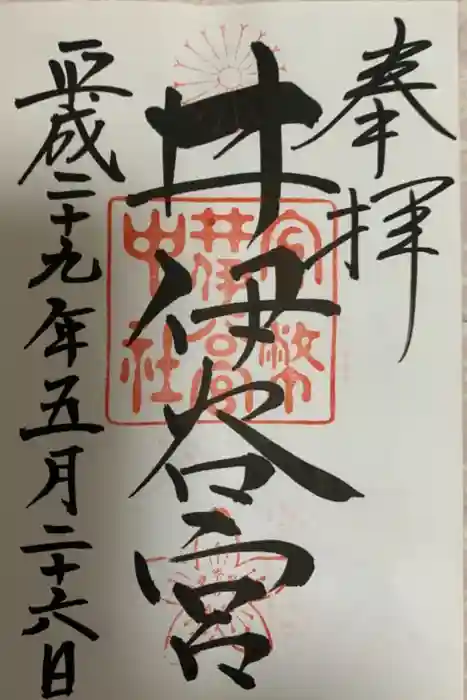 奉拝
井伊谷宮
官幣
井伊谷宮
中社
平成二十九年五月二十六日